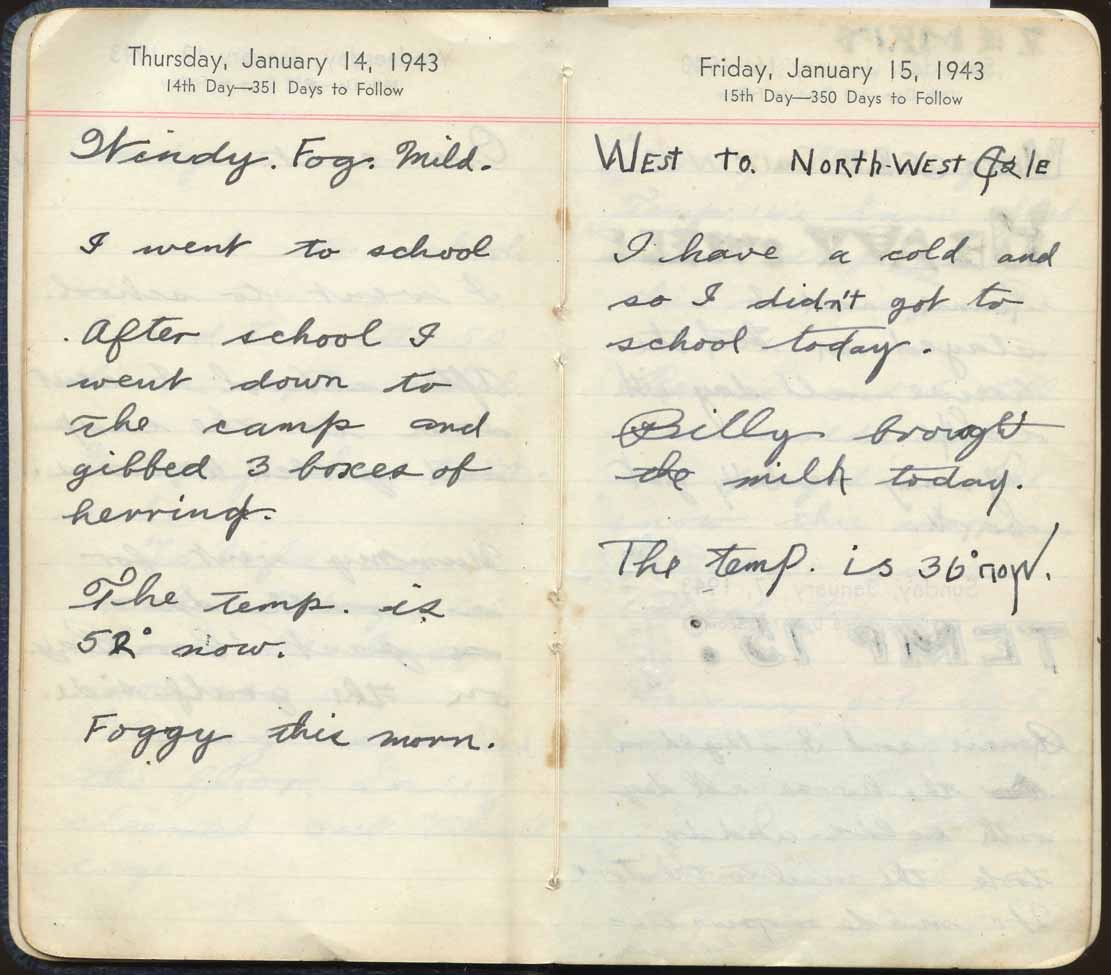 Thursday, January 14, 1943
14th Day—351 Days to Follow
Windy. Fog. Mild.
I went to school
After school I
went down to
the camp and
gibbed 3 boxes of
herring.
The temp. is
52° now.
Foggy this morn.
Friday, January 15, 1943
15th Day—350 Days to Follow
West to. North-West Gale
I have a cold and
so I didn't got to
school today.
Billy brought
the milk today.
The temp. is 36° now.